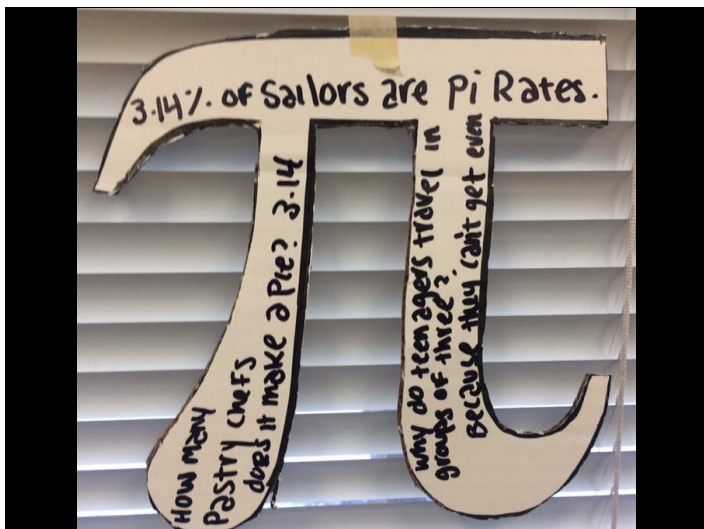 3.14% of Sailors are Pi Rates.
How many
Pastry chefs
does it make a Pie? 3.14
why do teenagers travel in
groups of three?
Because they can't get even